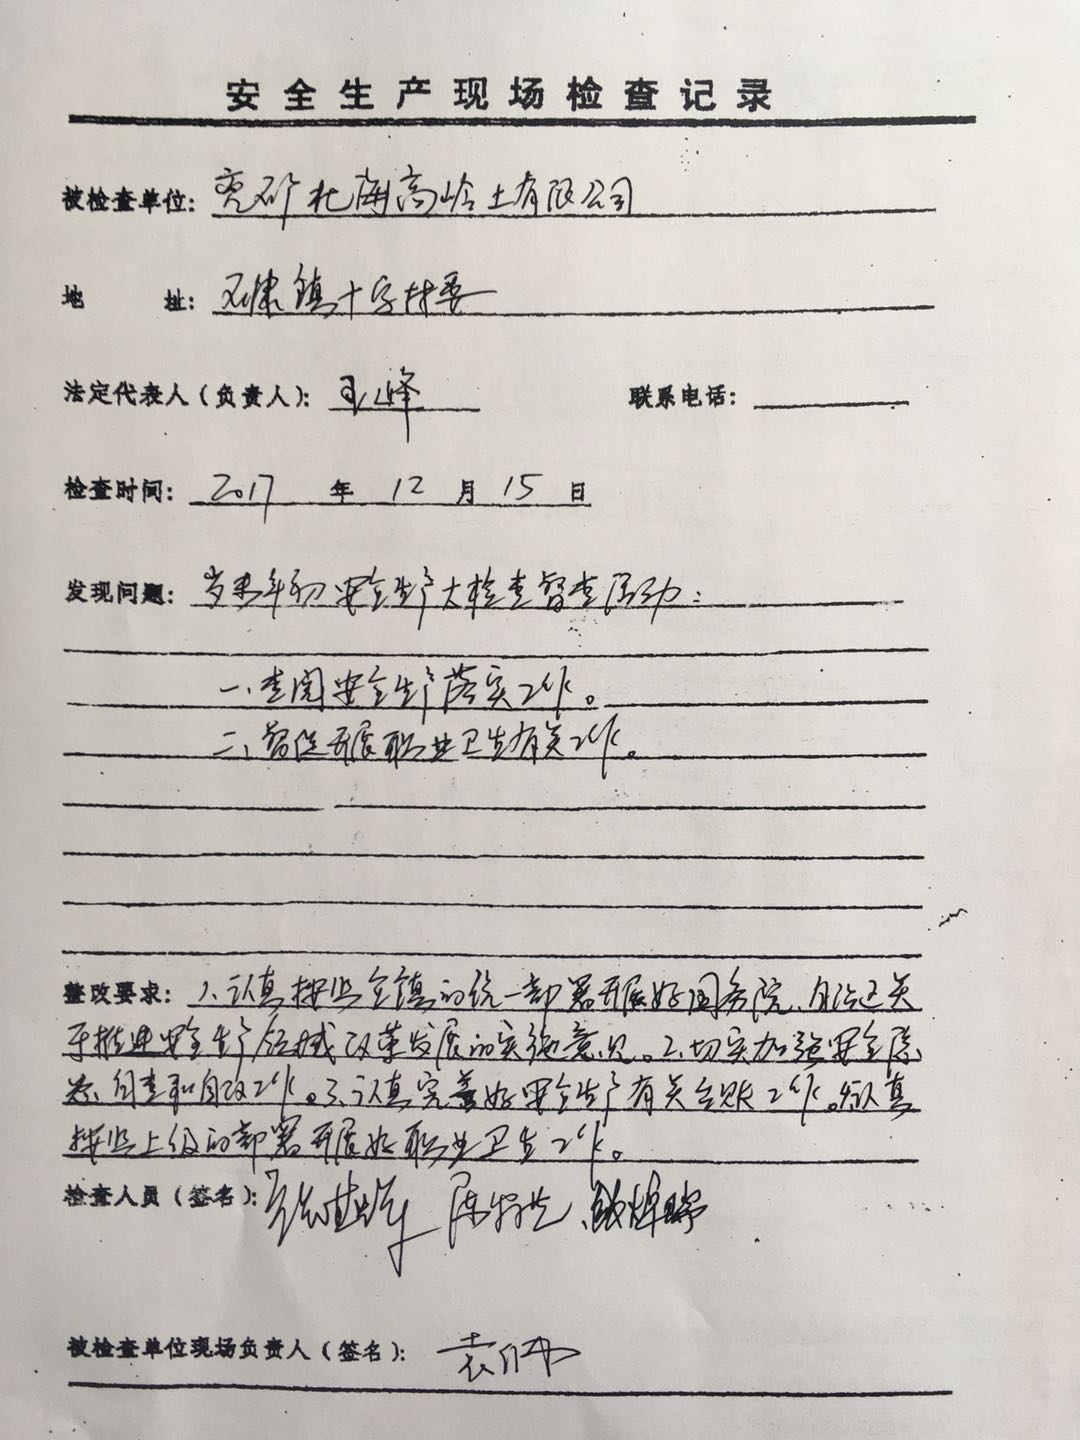 安全生产现场检查记录
被检查单位: 兖矿北海高岭土有限公司
地 址: 石康镇十字村委
法定代表人(负责人): 王峰 联系电话:
检查时间: 2017 年 12 月 15 日
发现问题: 岁末年初安全生产大检查督查活动:
一、查阅安全生产落实工作。
二、督促开展职业卫生有关工作。
整改要求: 1、认真按照全镇的统一部署开展好国务院、自治区关
于推进安全生产领域改革发展的实施意见。2、切实加强安全隐
患自查和自改工作。3、认真完善好安全生产有关台账工作。4、认真
按照上级的部署开展好职业卫生工作。
检查人员(签名):
被检查单位现场负责人(签名): 袁伟